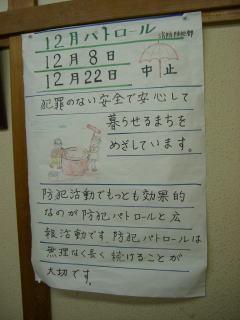 12月パトロール
12月8日
12月22日
中止
犯罪のない安全で安心して
暮らせるまちを
めざしています。
防犯活動でもっとも効果的
なのが防犯パトロールと広
報活動です。防犯パトロールは
無理なく長く続けることが
大切です。